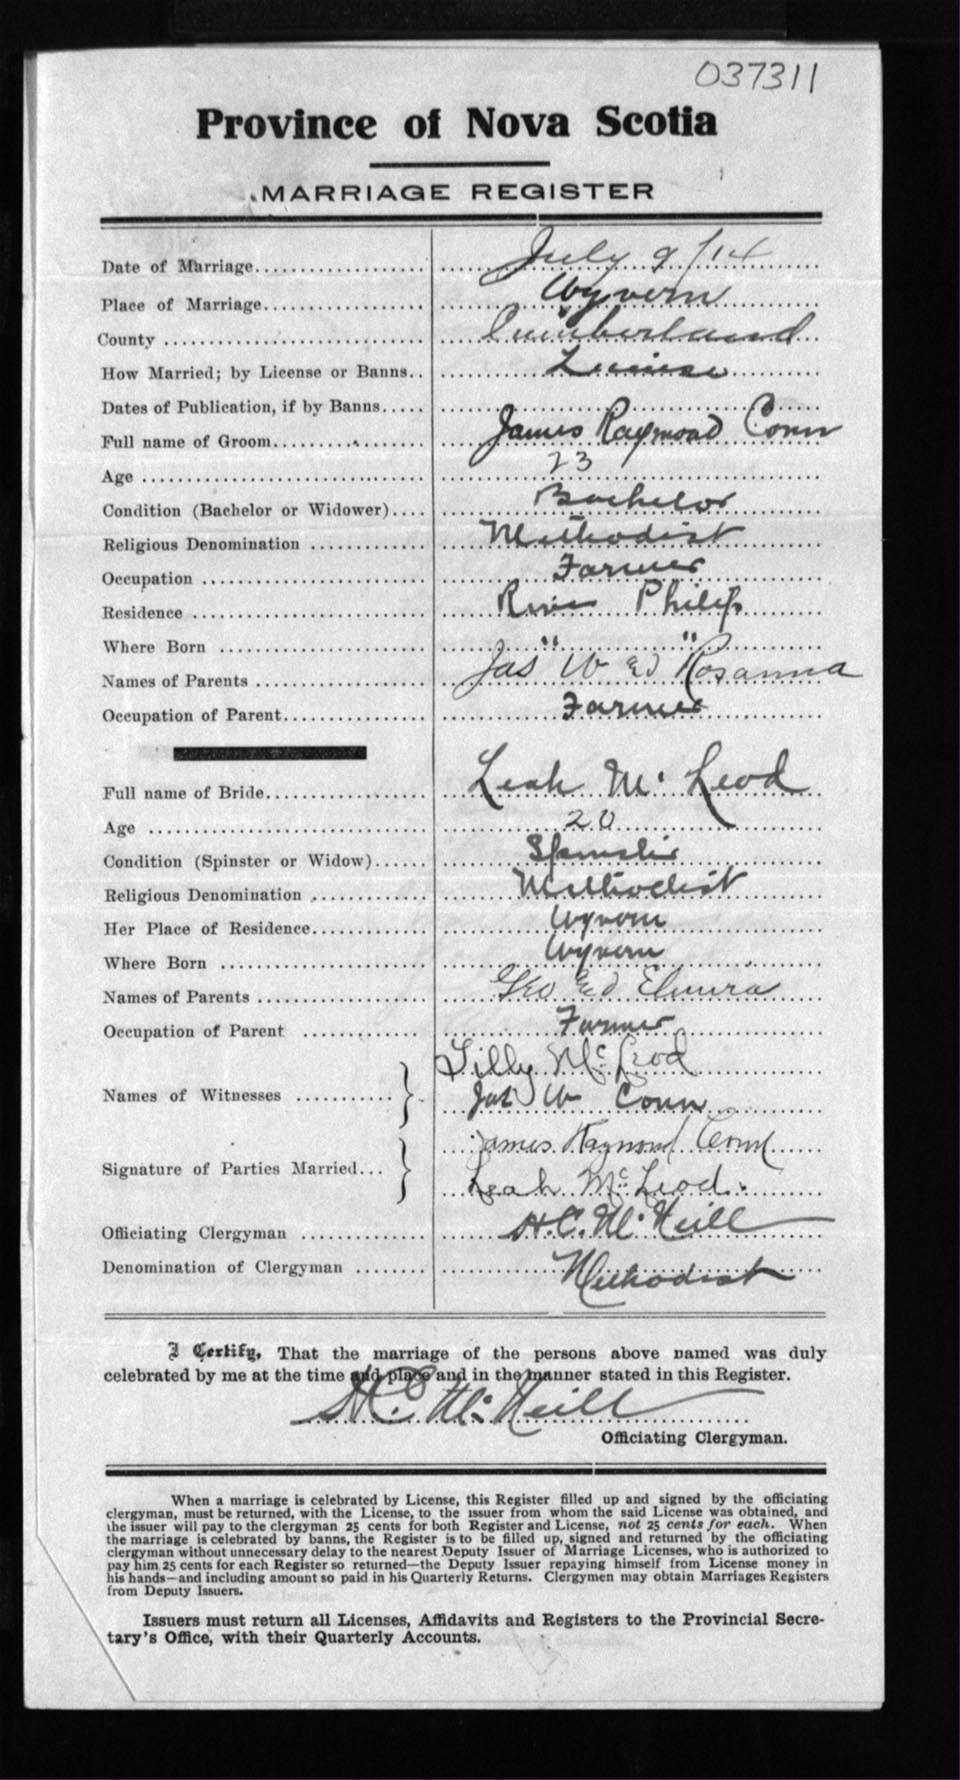 037311
Province of Nova Scotia
MARRIAGE REGISTER
Date of Marriage.................... July 9/14
Place of Marriage................... Wyvern
County .............................. Cumberland
How Married; by License or Banns.. License
Dates of Publication, if by Banns.....
Full name of Groom.................. James Raymond Conn
Age ................................. 23
Condition (Bachelor or Widower).... Bachelor
Religious Denomination ............. Methodist
Occupation .......................... Farmer
Residence ........................... River Philip
Where Born .......................... " "
Names of Parents .................... Jas W & Rosanna
Occupation of Parent................. Farmer
Full name of Bride................... Leah McLeod
Age ................................. 20
Condition (Spinster or Widow)...... Spinster
Religious Denomination ............. Methodist
Her Place of Residence.............. Wyvern
Where Born .......................... Wyvern
Names of Parents .................... Geo Elmira
Occupation of Parent ............... Farmer
Names of Witnesses ........... } Lilly McLeod
Jas W Conn
Signature of Parties Married... } James Raymond Conn
Leah McLeod.
Officiating Clergyman .............. H.C. McNeill
Denomination of Clergyman ........ Methodist
I Certify, That the marriage of the persons above named was duly
celebrated by me at the time and place and in the manner stated in this Register.
H.C. McNeill
Officiating Clergyman.
When a marriage is celebrated by License, this Register filled up and signed by the officiating
clergyman, must be returned, with the License, to the issuer from whom the said License was obtained, and
the issuer will pay to the clergyman 25 cents for both Register and License, not 25 cents for each. When
the marriage is celebrated by banns, the Register is to be filled up, signed and returned by the officiating
clergyman without unnecessary delay to the nearest Deputy Issuer of Marriage Licenses, who is authorized to
pay him 25 cents for each Register so returned—the Deputy Issuer repaying himself from License money in
his hands—and including amount so paid in his Quarterly Returns. Clergymen may obtain Marriages Registers
from Deputy Issuers.
Issuers must return all Licenses, Affidavits and Registers to the Provincial Secre-
tary's Office, with their Quarterly Accounts.